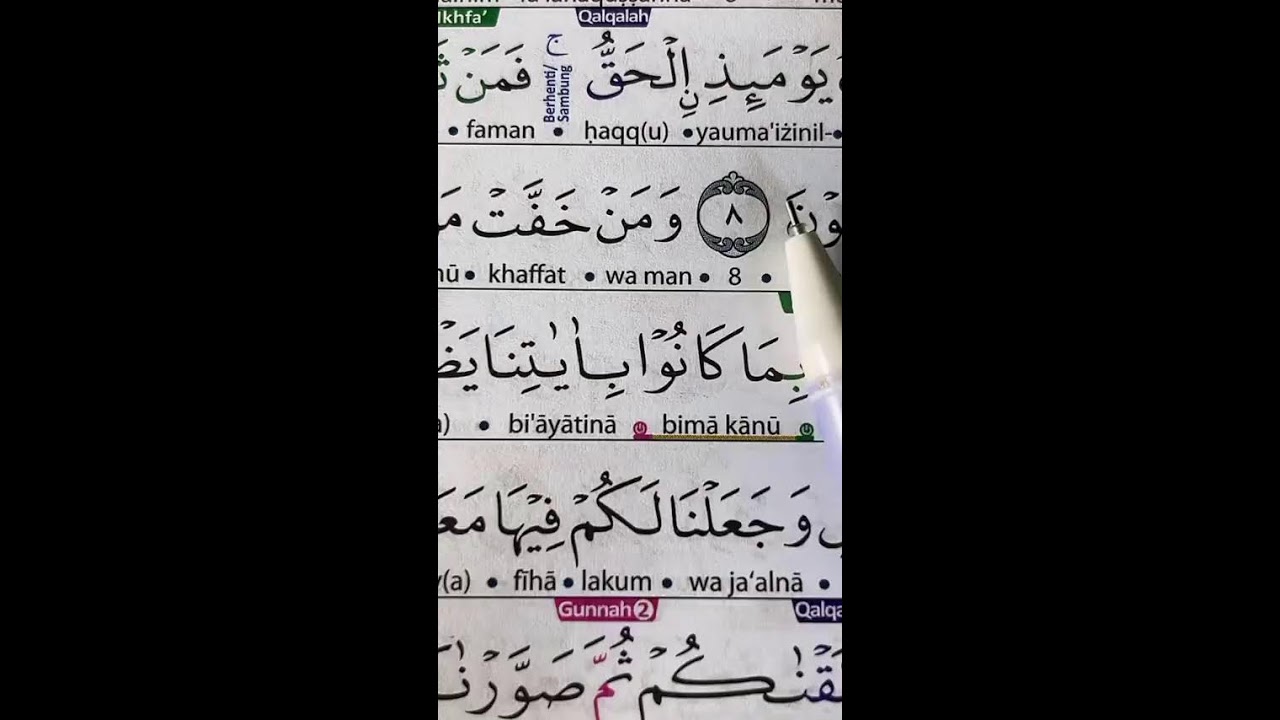 Ikhfa’ Qalqalah
يَوْمَىِٕذِ ِۨالْحَقُّ ۚ فَمَنْ
Berhenti/ Sambung
faman • ḥaqq(u) • yauma'iżinil-•
وْنَ ٨ وَمَنْ خَفَّتْ
khaffat • wa man • 8 •
بِمَا كَانُوْا بِاٰيٰتِنَا
bi'āyātinā bimā kānū
وَجَعَلْنَا لَكُمْ فِيْهَا
y(a) • fīhā • lakum • wa ja‘alnā •
Gunnah 2 Qalqa
قْنٰكُمْ ثُمَّ صَوَّرْنٰ